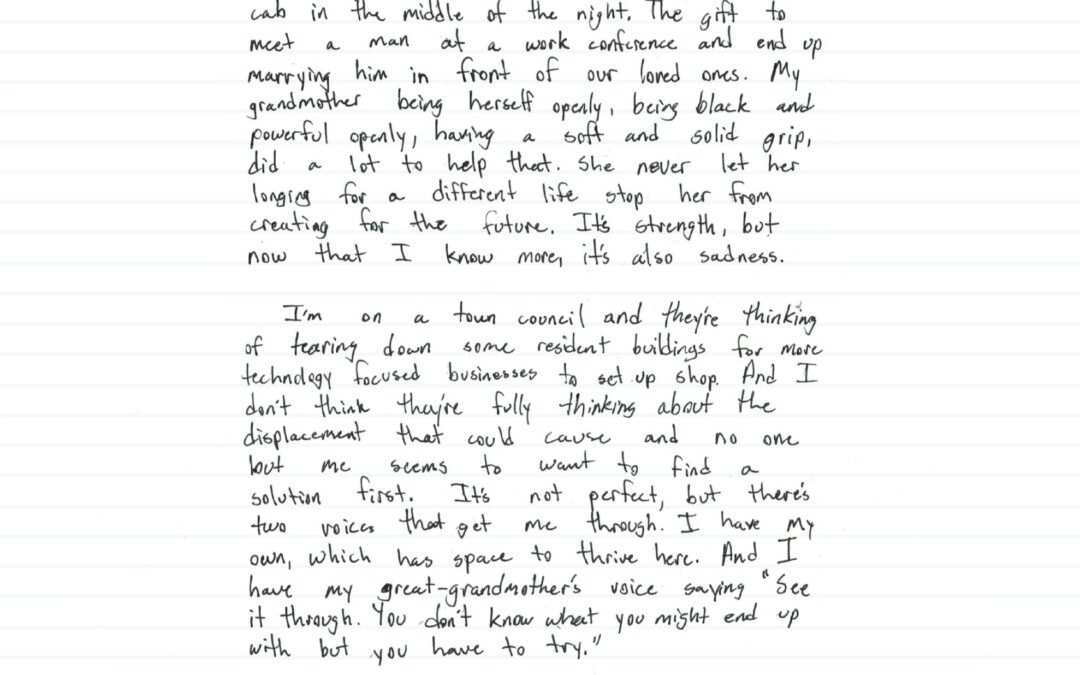 cab in the middle of the night. The gift to
meet a man at a work conference and end up
marrying him in front of our loved ones. My
grandmother being herself openly, being black and
powerful openly, having a soft and solid grip,
did a lot to help that. She never let her
longing for a different life stop her from
creating for the future. It's strength, but
now that I know more, it's also sadness.
I'm on a town council and they're thinking
of tearing down some resident buildings for more
technology focused businesses to set up shop. And I
don't think they're fully thinking about the
displacement that could cause and no one
but me seems to want to find a
solution first. It's not perfect, but there's
two voices that get me through. I have my
own, which has space to thrive here. And I
have my great-grandmother's voice saying "See
it through. You don't know what you might end up
with but you have to try."